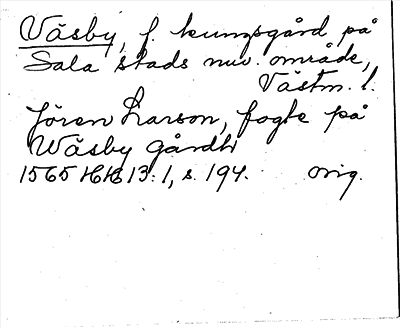 Väsby, f. kungsgård på
Sala stads nuv. område,
Västm. l.
Jören Larson, fogte på
Wäsby gårdh
1565 HH 13:1, s. 194. orig.